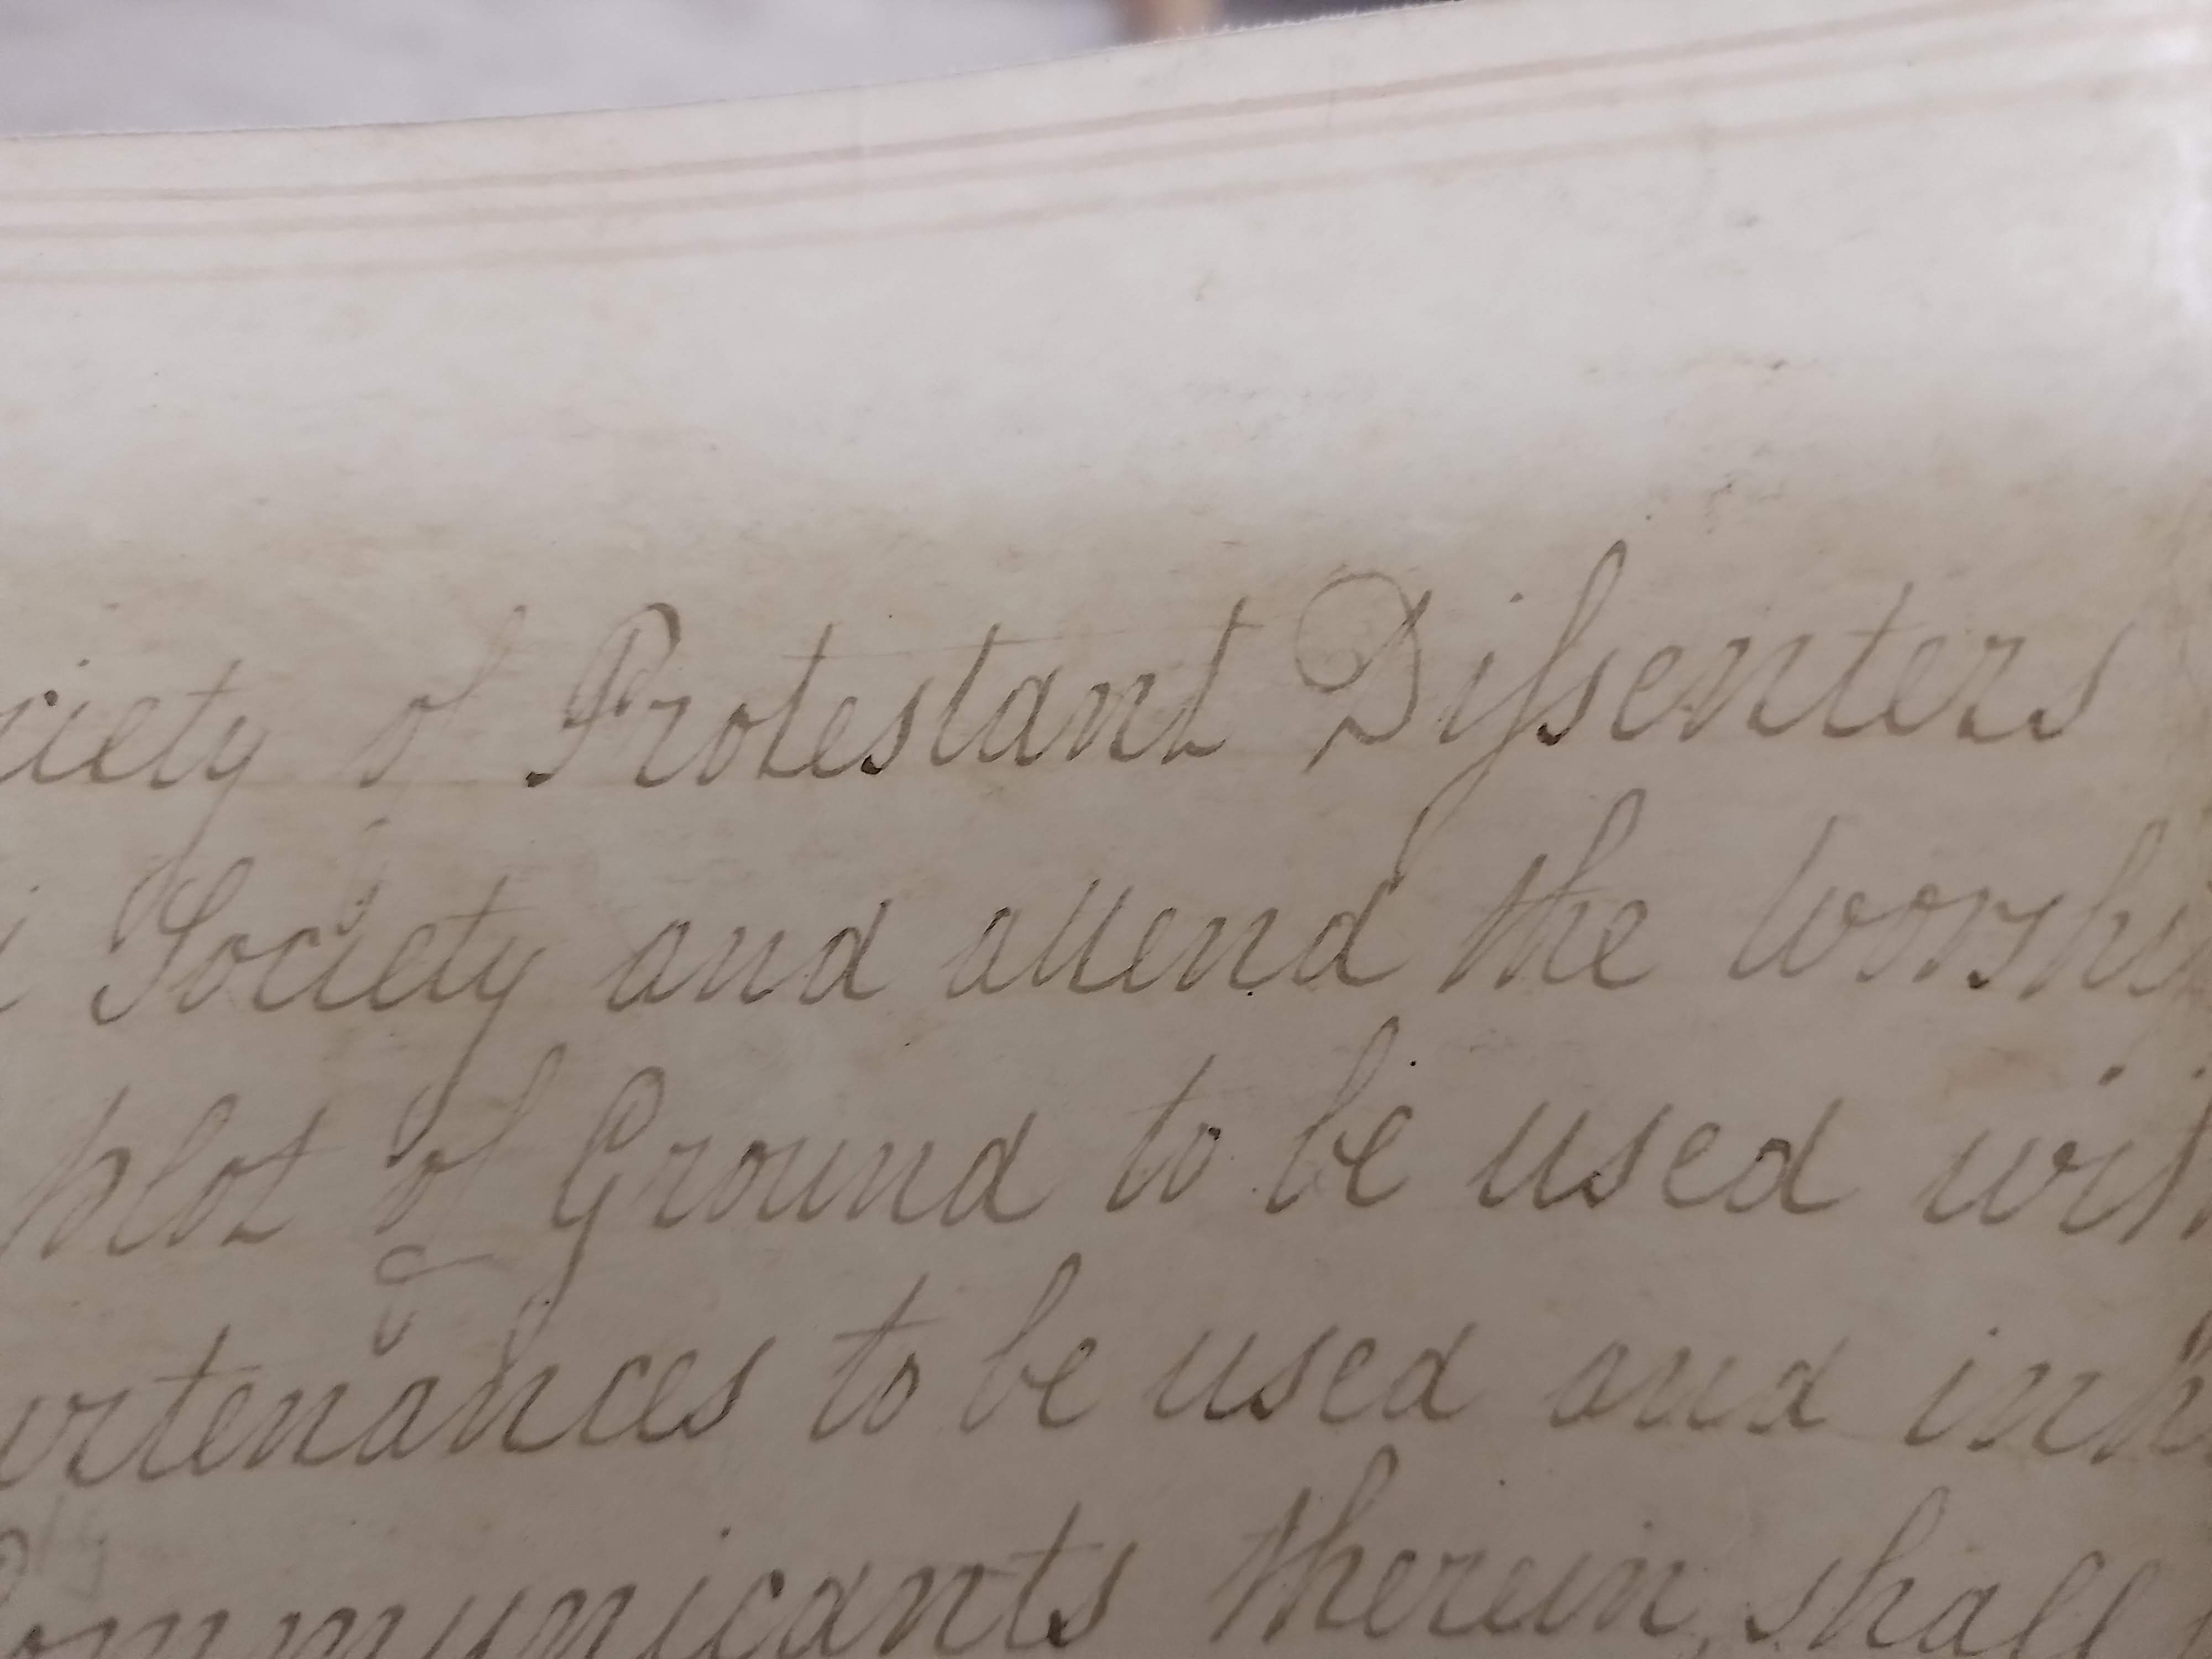 ciety of Protestant Diſsenters
Society and attend the Worship
plot of Ground to be used with
urtenances to be used and inh
ommunicants therein, shall